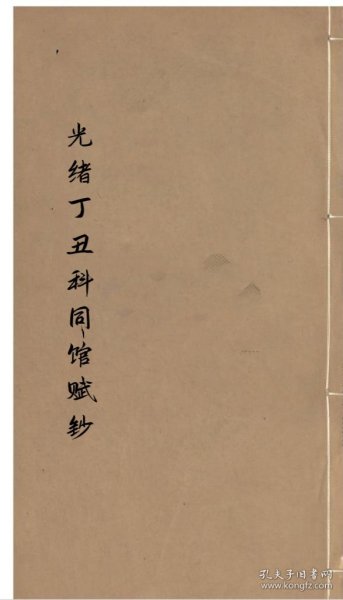 光绪丁丑科同馆赋鈔
孔夫子旧书网
www.kongfz.com